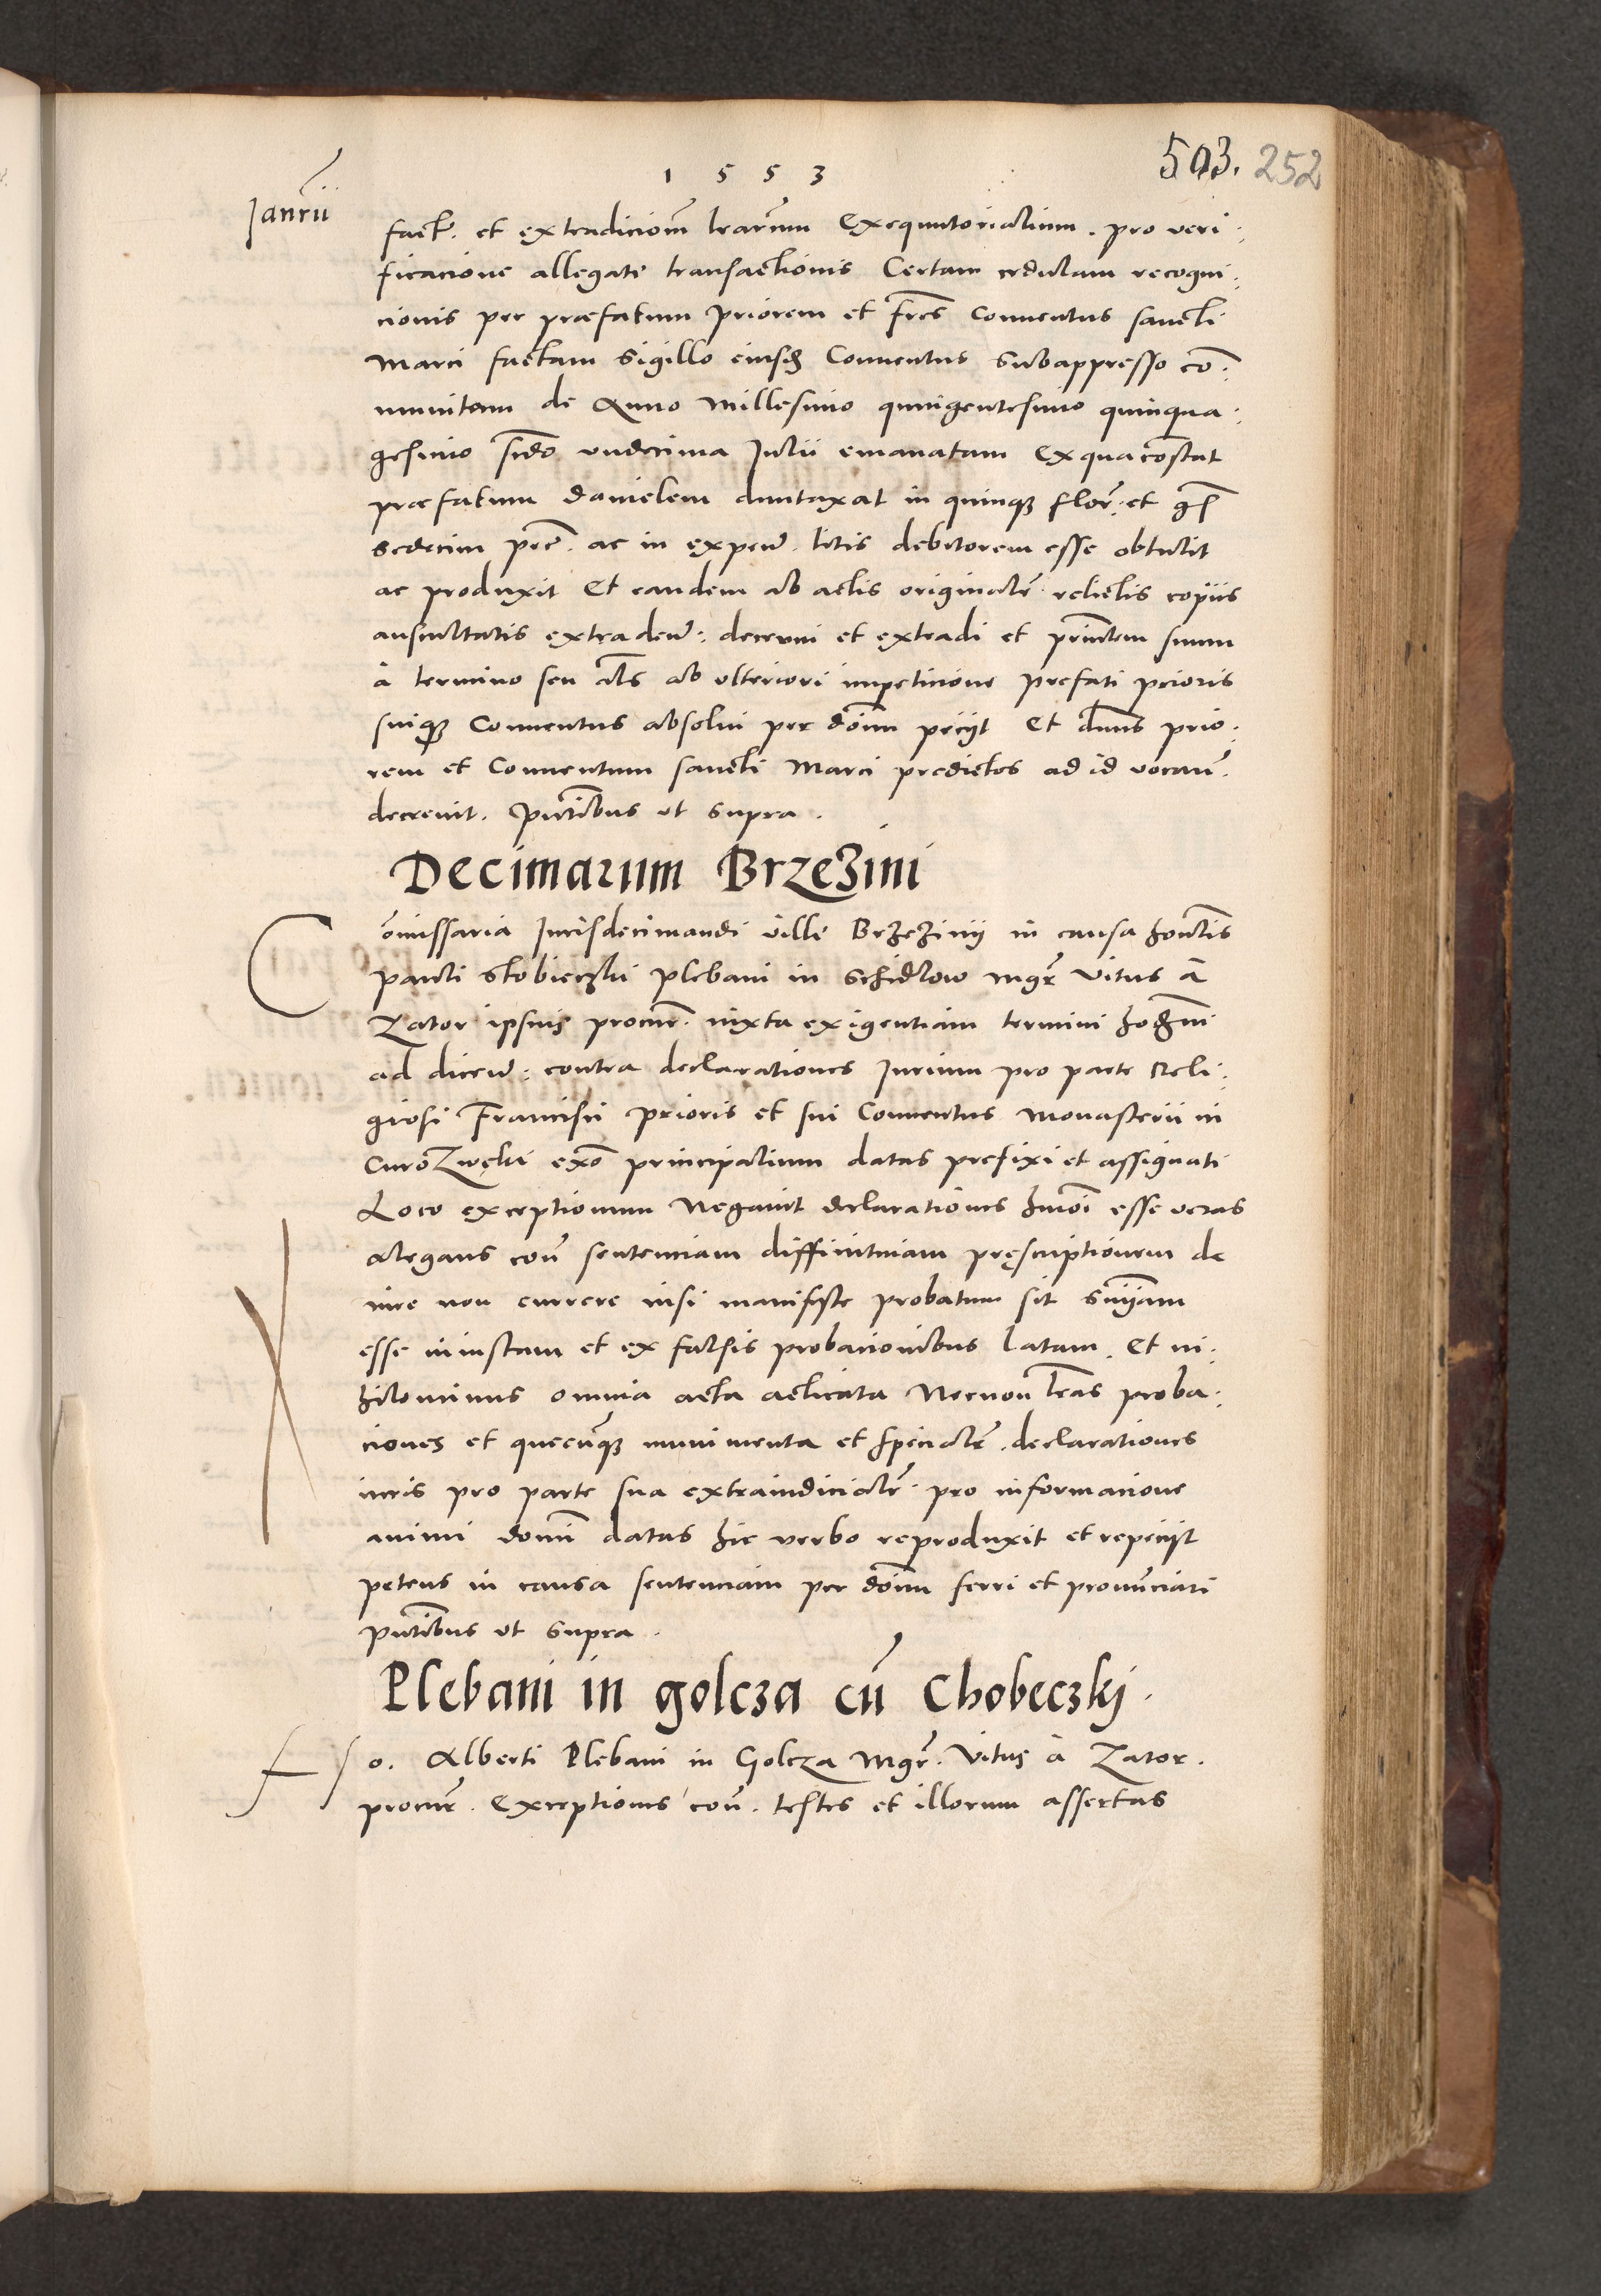 1553
503. 252
Januarii
fact. et extradicionem lrarum Exequutorialium. pro veri:
ficacione allegate transactionis Certam cedulam recogni:
cionis per praefatum priorem et fres Conventus sancti
Marci factam Sigillo eiusdem Conventus Subappresso co:
munitam de Anno Millesimo quingentesimo quinqua:
gesimo scdo undecima Julii emanatam Ex qua constat
praefatum Danielem duntaxat in quinque flor. et gr
sedecim pec. ac in expen. litis debitorem esse obtulit
ac produxit Et eandem ab actis originalem relictis copiis
auscultatis extraden: decerni et extradi et principalem suum
à termino seu als ab ulteriori impeticione prefati prioris
suique Conventus absolvi per dnm peciit Et dnus prio:
rem et Conventum sancti Marci predictos ad id vocan.
decrevit. pntibus ut supra.
Decimarum Brzezini
Comissaria Jurisdecimandi ville Brzezinij in causa honlis
Pauli Skobieczki Plebani in Schidlow Mgr Vitus à
Zator ipsius procur. iuxta exigentiam termini hodierni
ad dicen: contra declarationes Jurium pro parte Reli:
giosi Francisci prioris et sui Conventus Monasterii in
Curozweki exo principalium datas prefixi et assignati
Loco exceptionum Negavit declarationes hmoi esse veras
alegans con sentenciam diffinitivam pręscriptionem de
iure non currere nisi manifeste probatum sit Sniam
esse iniustam et ex falsis probacionibus latam. Et ni:
hilominus omnia acta actitata Necnon lras proba:
ciones et quecunque munimenta et specialr. declarationes
iuris pro parte sua extraiudicialr. pro informacione
animi domini datas hic verbo reproduxit et repeciit
petens in causa sentenciam per dnm ferri et pronunciari
pntibus ut supra.
Plebani in golcza cum Chobeczkj.
Ho. Alberti Plebani in Golcza Mgr. Vitus à Zator.
procur. Exceptiones con. testes et illorum assertas